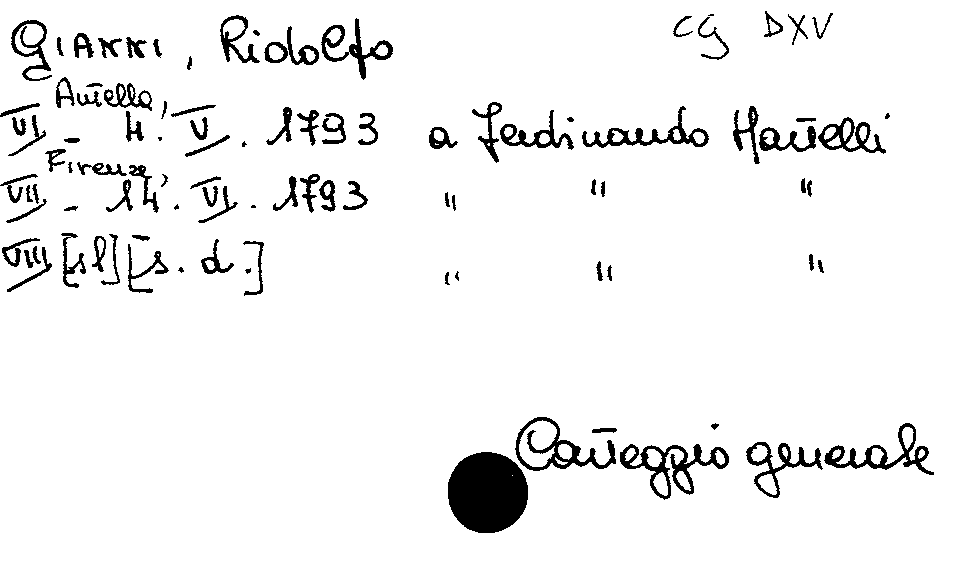 GIANNI, Ridolfo CG DXV
VI - Antella, 4. V. 1793 a Ferdinando Martelli
VII - Firenze, 14. VI. 1793 " " "
VIII [s l] [s. d.] " " "
Carteggio generale